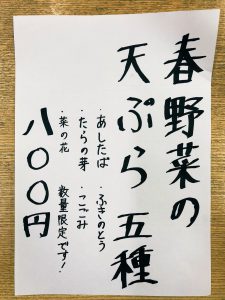 春野菜の
天ぷら五種
・あしたば
・ふきのとう
・たらの芽
・こごみ
・菜の花
数量限定です!
八〇〇円